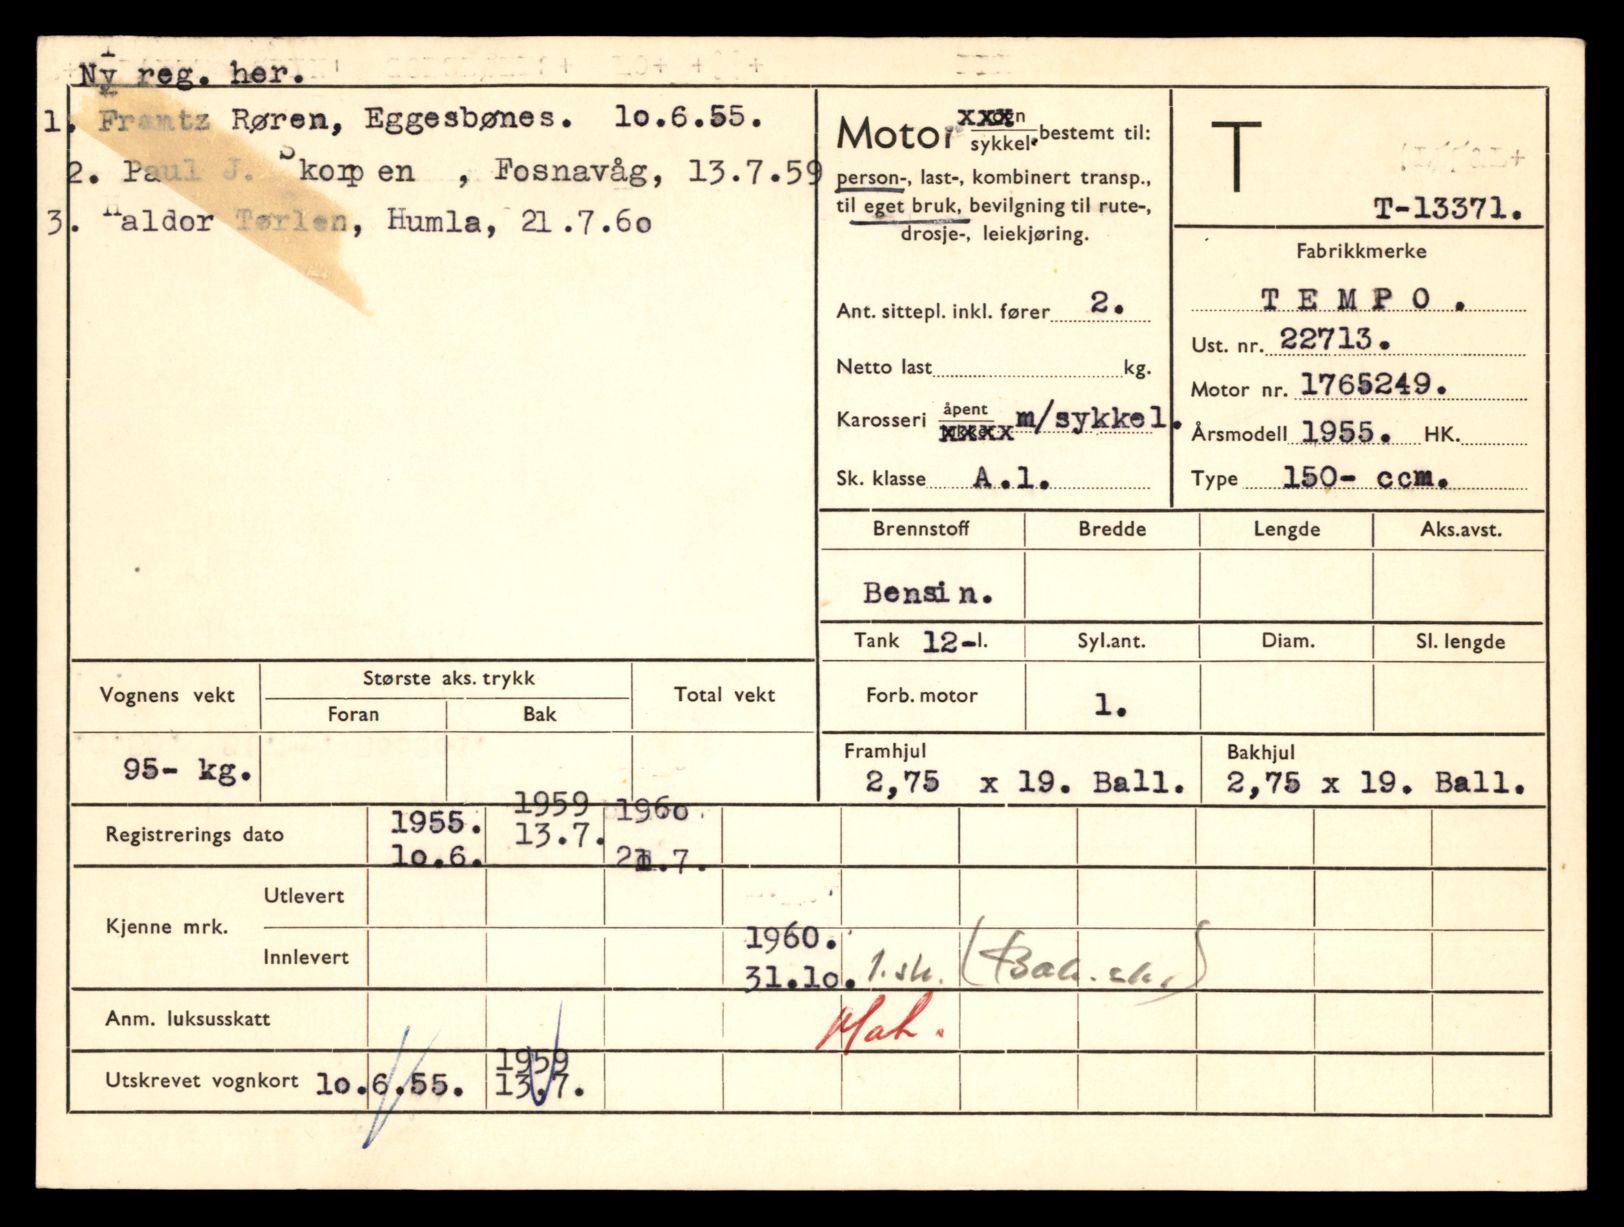 Ny reg. her.
1. Frantz Røren, Eggesbønes. 1o.6.55.
2. Paul J. Skorpen , Fosnavåg, 13.7.59
3. Haldor Tørlen, Humla, 21.7.6o
Motor xxxogn
sykkel bestemt til:
person-, last-, kombinert transp.,
til eget bruk, bevilgning til rute-,
drosje-, leiekjøring.
Ant. sittepl. inkl. fører 2.
Netto last kg.
Karosseri åpent xxxx m/sykkel.
Sk. klasse A.1.
T
T-13371.
Fabrikkmerke
TEMPO.
Ust. nr. 22713.
Motor nr. 1765249.
Årsmodell 1955. HK.
Type 150- ccm.
Brennstoff Bredde Lengde Aks.avst.
Bensin.
Tank 12-l. Syl.ant. Diam. Sl. lengde
Forb. motor 1.
Framhjul Bakhjul
2,75 x 19. Ball. 2,75 x 19. Ball.
Vognens vekt Største aks. trykk Total vekt
Foran Bak
95- kg.
Registrerings dato 1955. 1959 196o
1o.6. 13.7. 21.7.
Kjenne mrk. Utlevert
Innlevert 1960.
31.1o. 1. sk. (Bak. sk.)
Anm. luksusskatt
Utskrevet vognkort 1o.6.55. 1959
13.7.